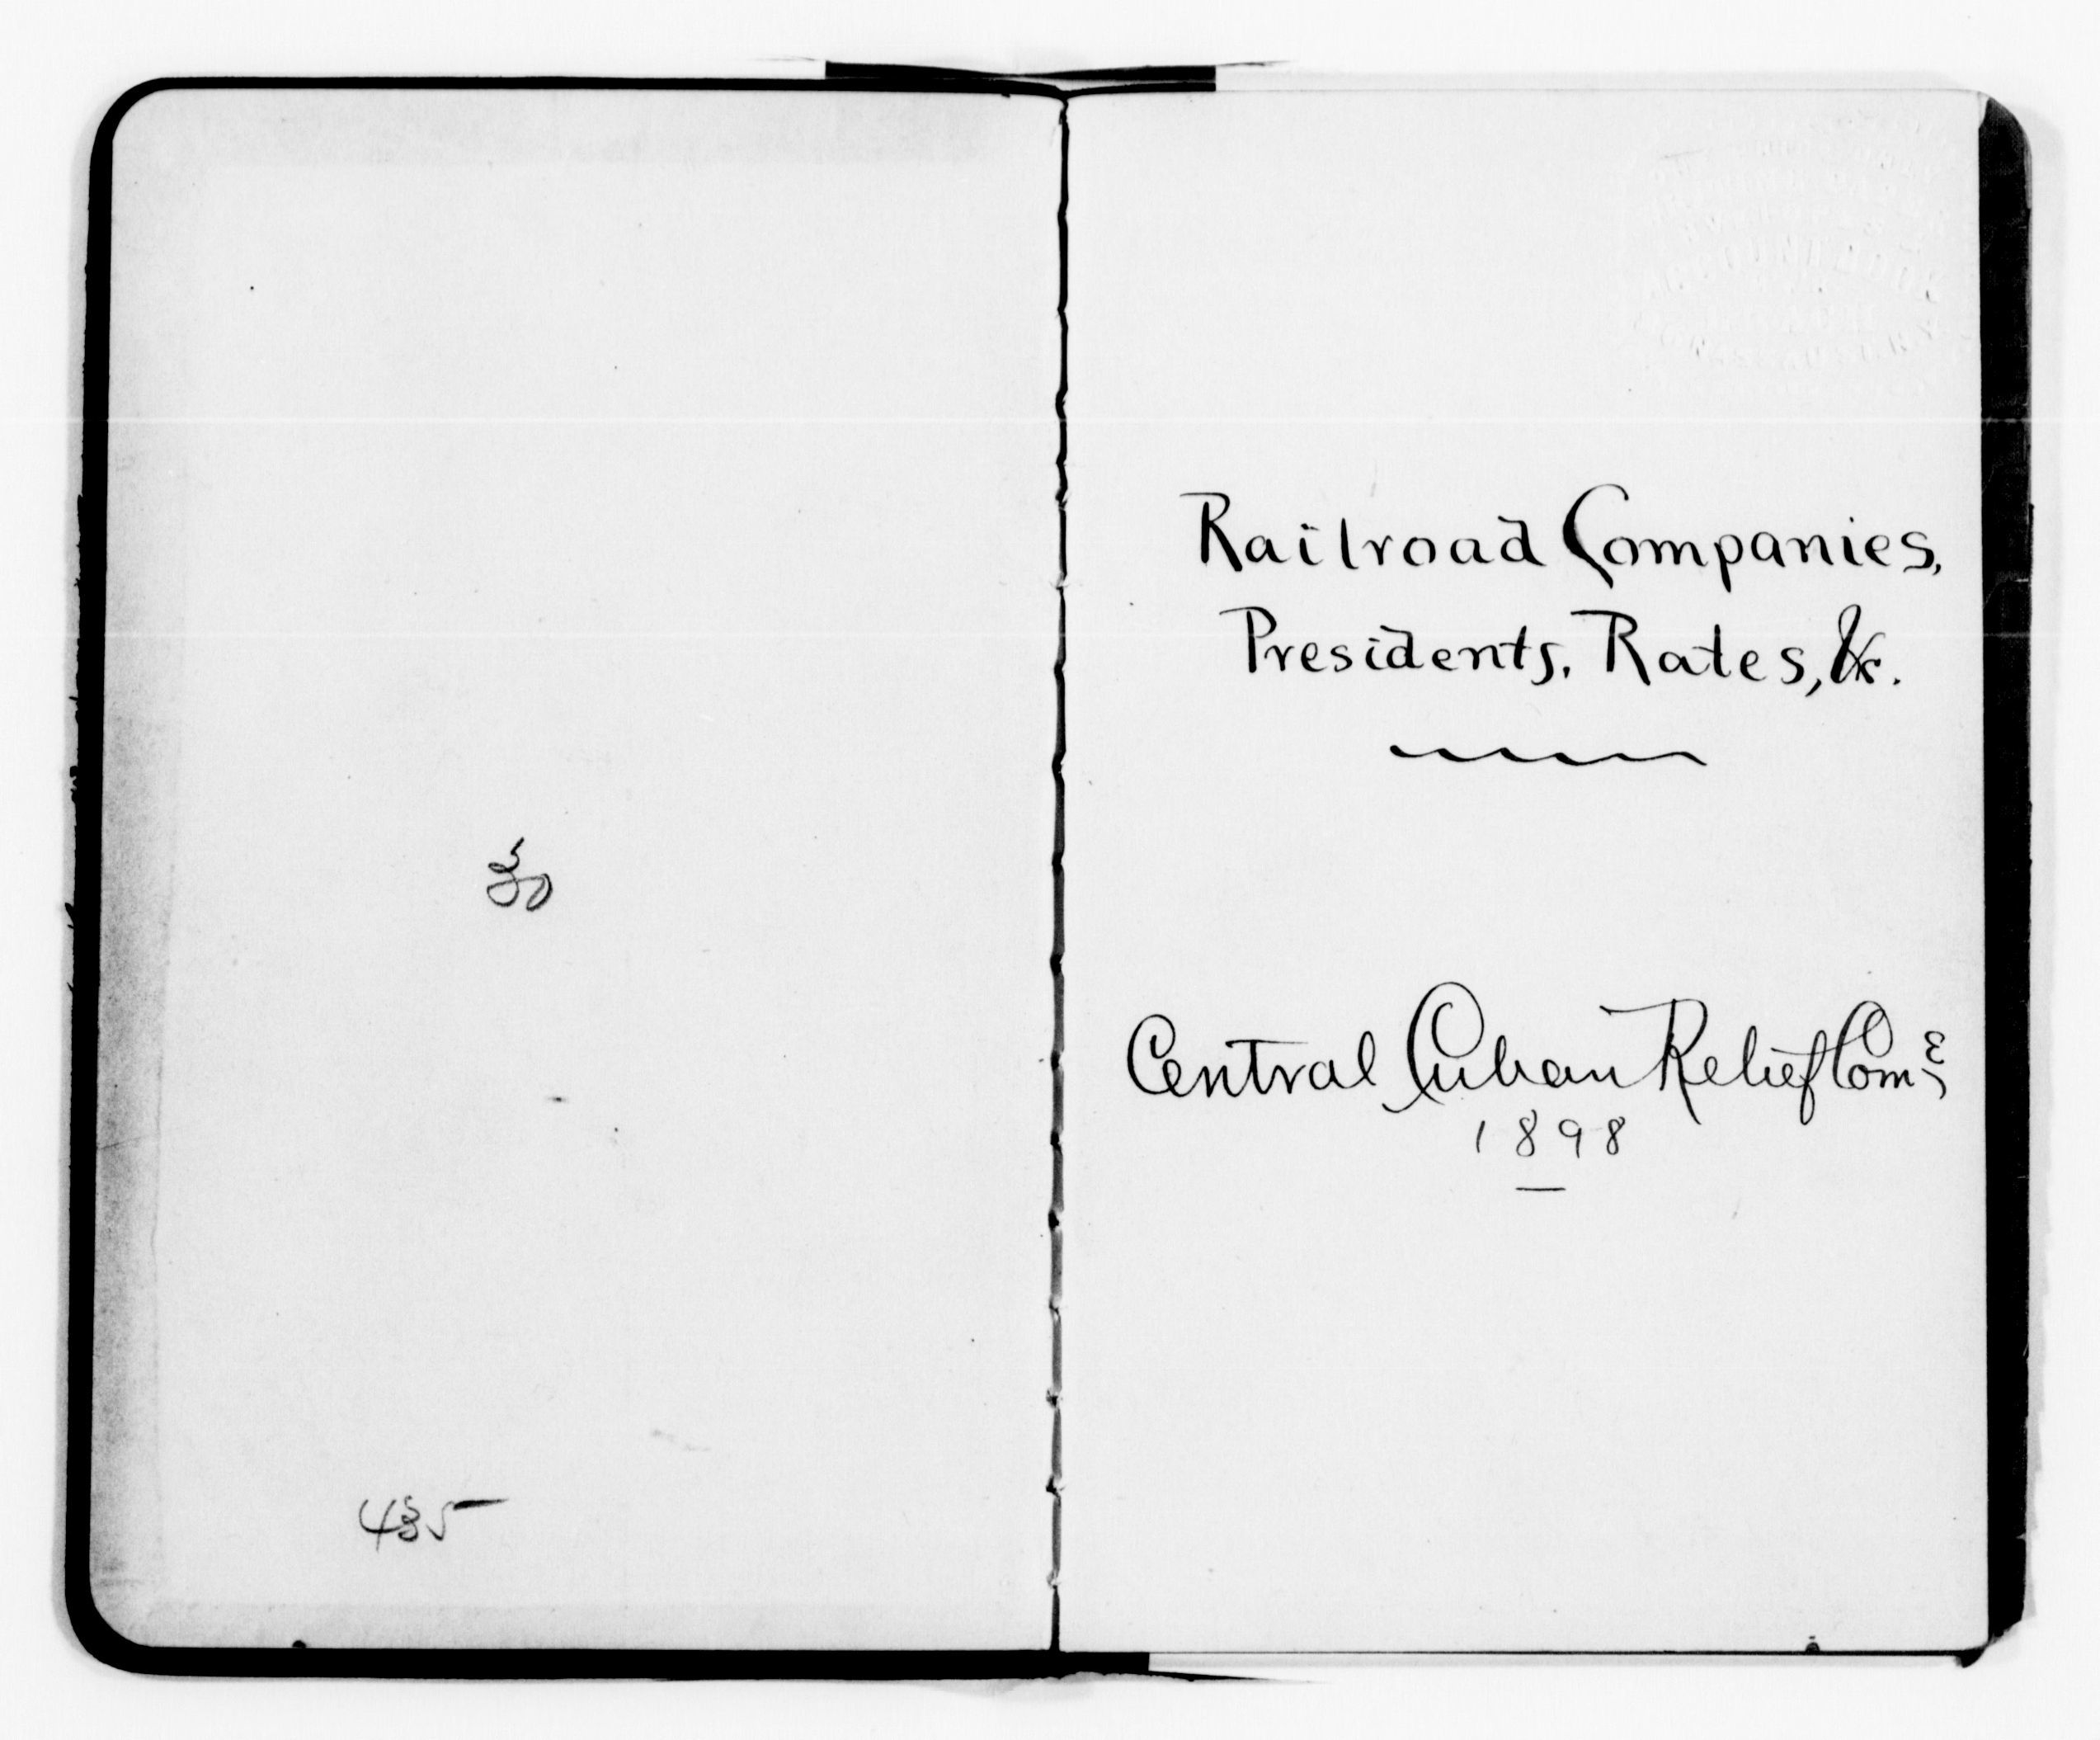 30
435
Railroad Companies,
Presidents, Rates, &c.
Central Cuban Relief Com.ee
1898